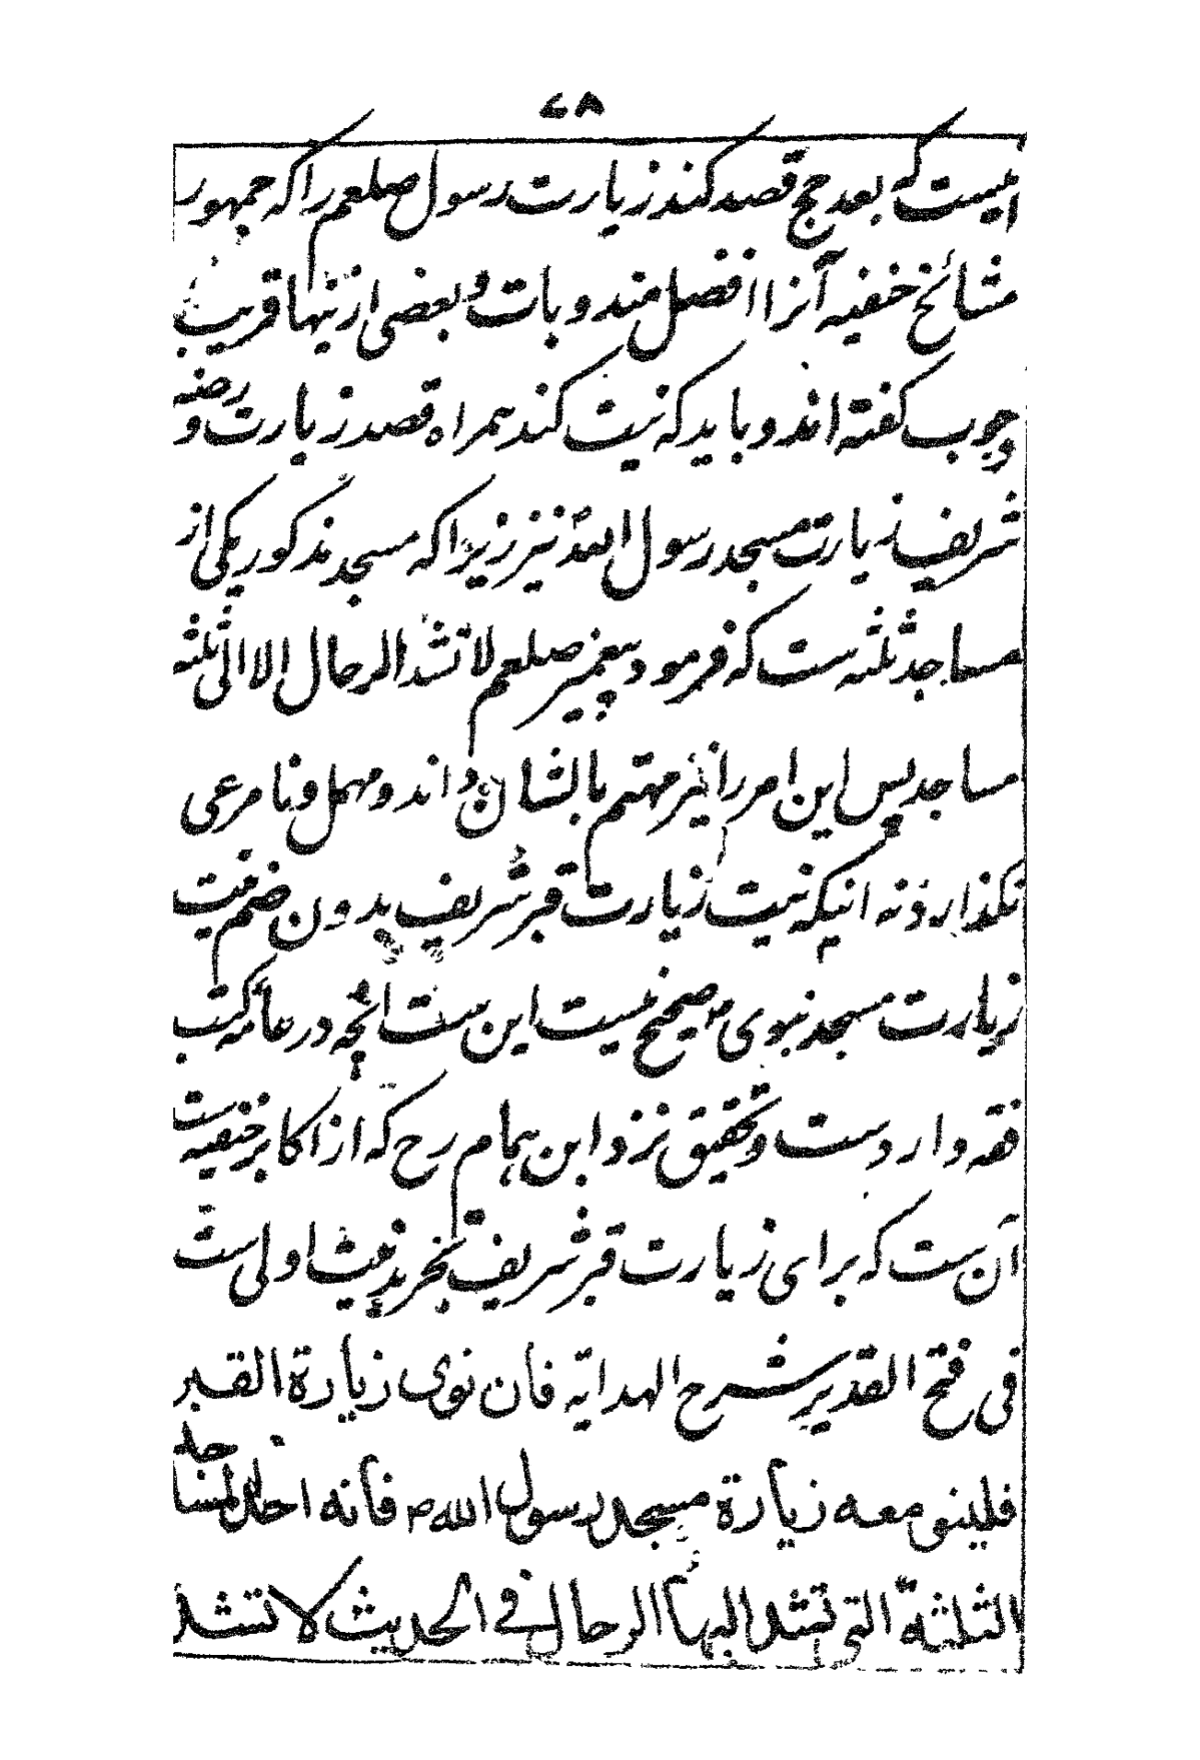 ۷۸
اینست که بعد حج قصد کند زیارت رسول صلعم را که جمهور
مشائخ حنفیه آنرا افضل مندوبات و بعضی ازینها قریب
وجوب گفته اند و باید که نیت کند همراه قصد زیارت روضه
شریف زیارت مسجد رسول الله نیز زیرا که مسجد مذکور یکی از
مساجد ثلثه ست که فرمود پیغمبر صلعم لا تشد الرحال الا الی ثلثه
مساجد پس این امر را نیز مهتم بالشان داند و مهمل و نا مرعی
نگذارد نه اینکه نیت زیارت قبر شریف بدون ضم نیت
زیارت مسجد نبوی م صحیح نیست این ست آنچه در عامه کتب
فقه وارد ست و تحقیق نزد ابن همام رح که از اکابر حنفیه ست
آن ست که برای زیارت قبر شریف تجرید نیت اولی است
فی فتح القدیر شرح الهدایة فان نوی زیارة القبر
فلینو معه زیارة مسجد رسول الله م فانه احد المساجد
الثلثة التی تشد الیها الرحال فی الحدیث لا تشد